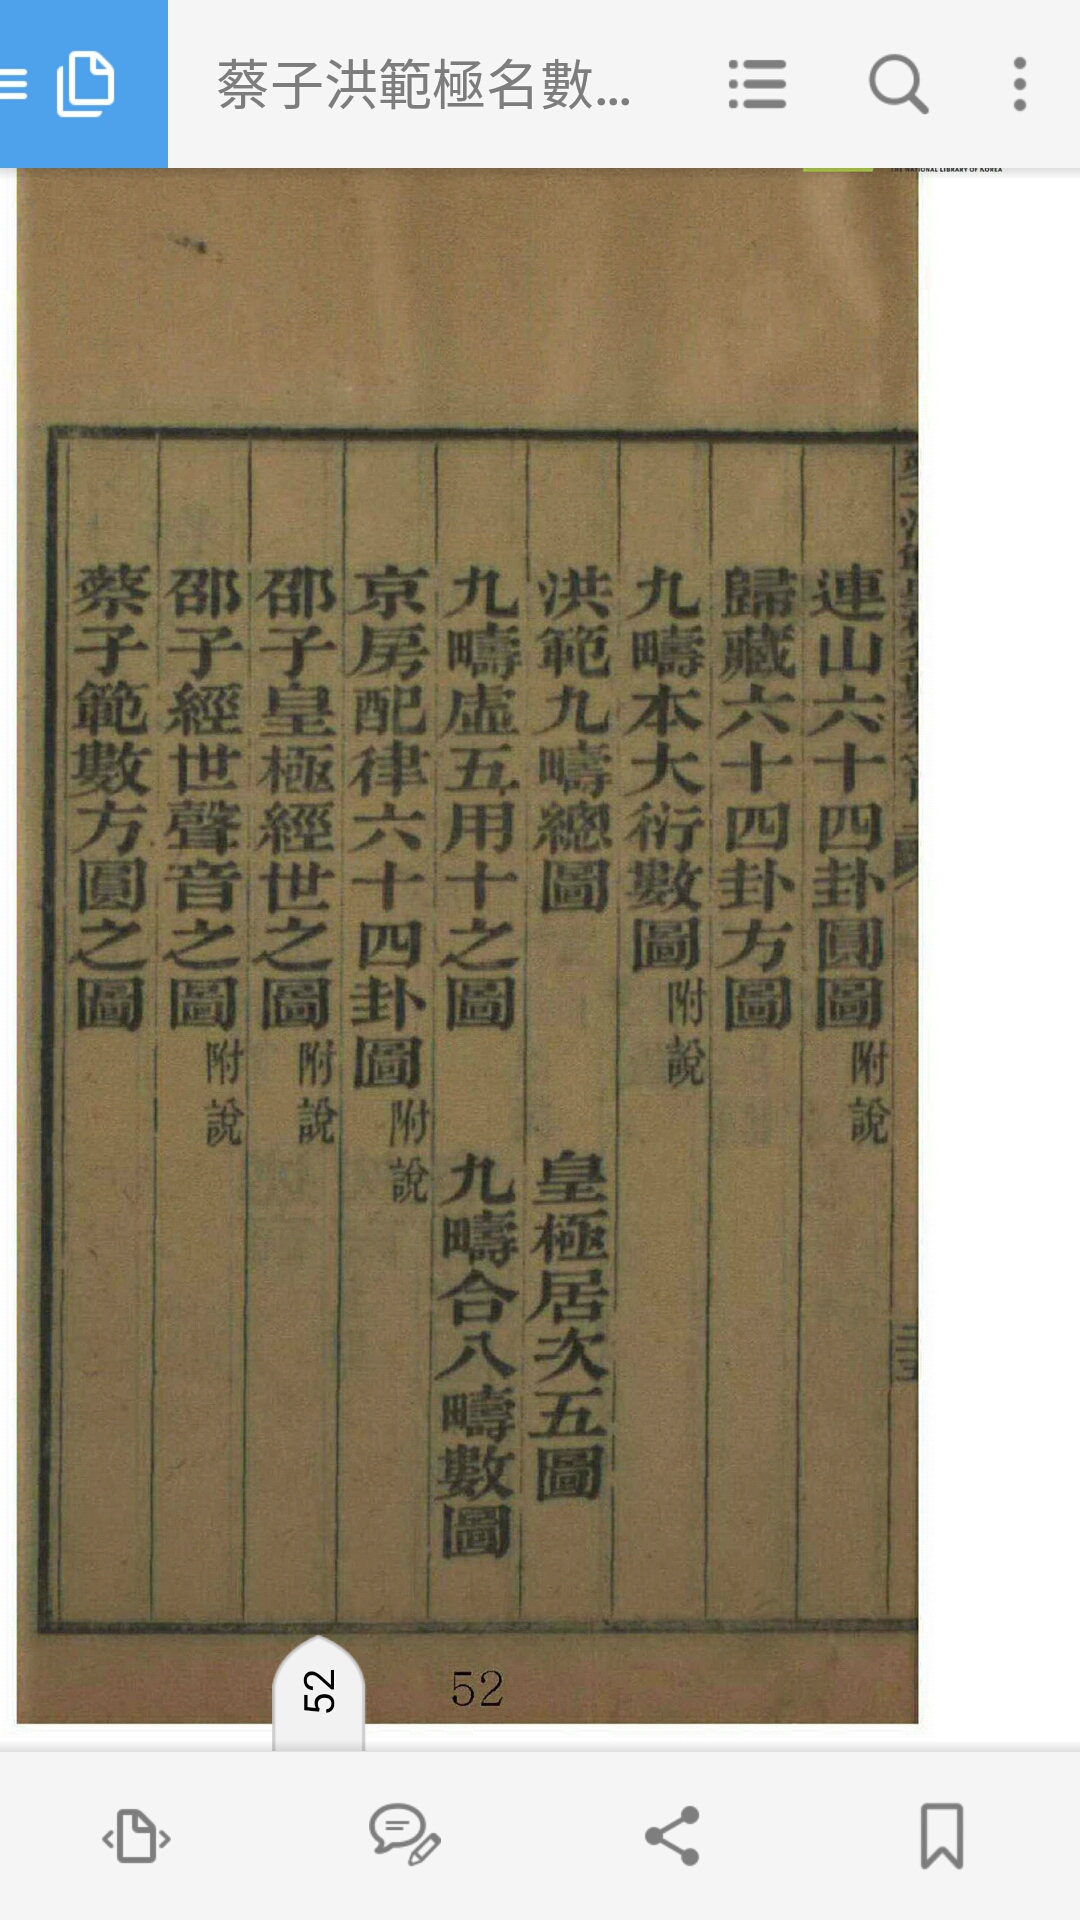 蔡子洪範極名數...
THE NATIONAL LIBRARY OF KOREA
連山六十四卦圓圖附說
歸藏六十四卦方圖
九疇本大衍數圖附說
洪範九疇總圖 皇極居次五圖
九疇虛五用十之圖 九疇合八疇數圖
京房配律六十四卦圖附說
邵子皇極經世之圖附說
邵子經世聲音之圖附說
蔡子範數方圓之圖
52
52